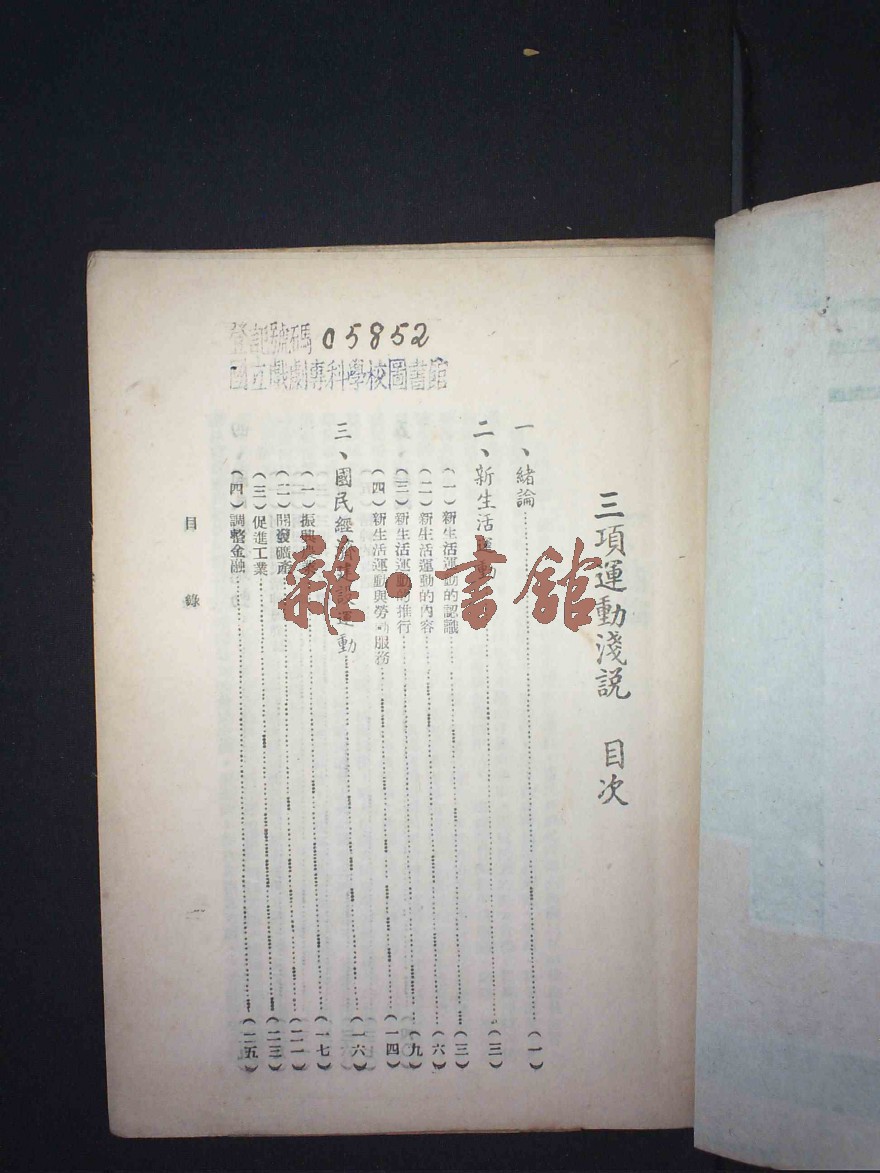 登記號碼 05852
國立戲劇專科學校圖書館
三項運動淺説 目次
一、緒論(一)
二、新生活運動(三)
(一)新生活運動的認識(三)
(二)新生活運動的內容(六)
(三)新生活運動的推行(九)
(四)新生活運動與勞動服務(一四)
三、國民經濟建設運動(一六)
(一)振興農業(一七)
(二)開發礦產(二一)
(三)促進工業(二三)
(四)調整金融(二五)
目 錄
一
雜·書館